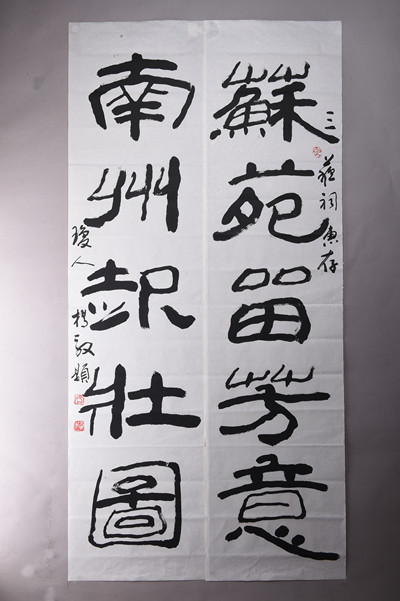 蘇苑留芳意
三蘇祠惠存
南州起壯圖
瓊人
楊毅